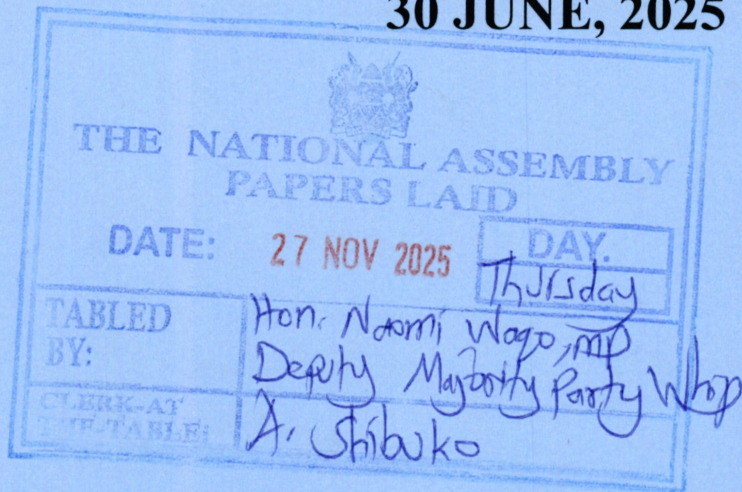 30 JUNE, 2025
THE NATIONAL ASSEMBLY
PAPERS LAID
DATE: 27 NOV 2025 DAY.
Thursday
TABLED BY: Hon. Naomi Waqo, MP
Deputy Majority Party Whip
CLERK-AT THE-TABLE: A. Shibuko